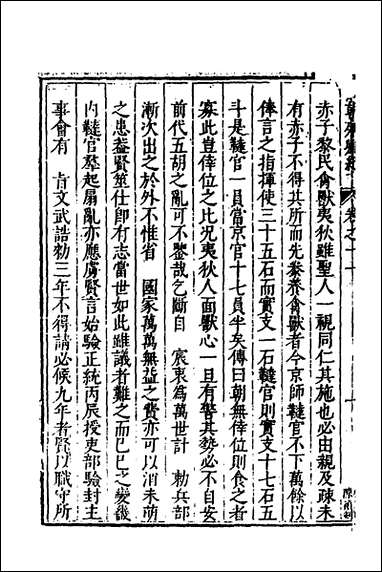 赤子黎民禽獸夷狄雖聖人一視同仁其施也必由親及疎未
有赤子不得其所而先豢養禽獸者今京師韃官不下萬餘以
俸言之指揮使三十五石而實支一石韃官則實支十七石五
斗是韃官一員當京官十七員半矣傳曰朝無倖位則食之者
寡此豈倖位之比況夷狄人面獸心一旦有警其勢必不自安
前代五胡之亂可不鑒哉乞斷自　宸衷爲萬世計　勅兵部
漸次出之於外不惟省　國家萬萬無益之費亦可以消未萌
之患葢賢筮仕卽有志當世如此雖議者難之而巳巳之變畿
內韃官羣起扇亂亦應虜賢言始驗正統丙辰授吏部驗封主
事會有　旨文武誥勅三年不得請必候九年者賢以職守所